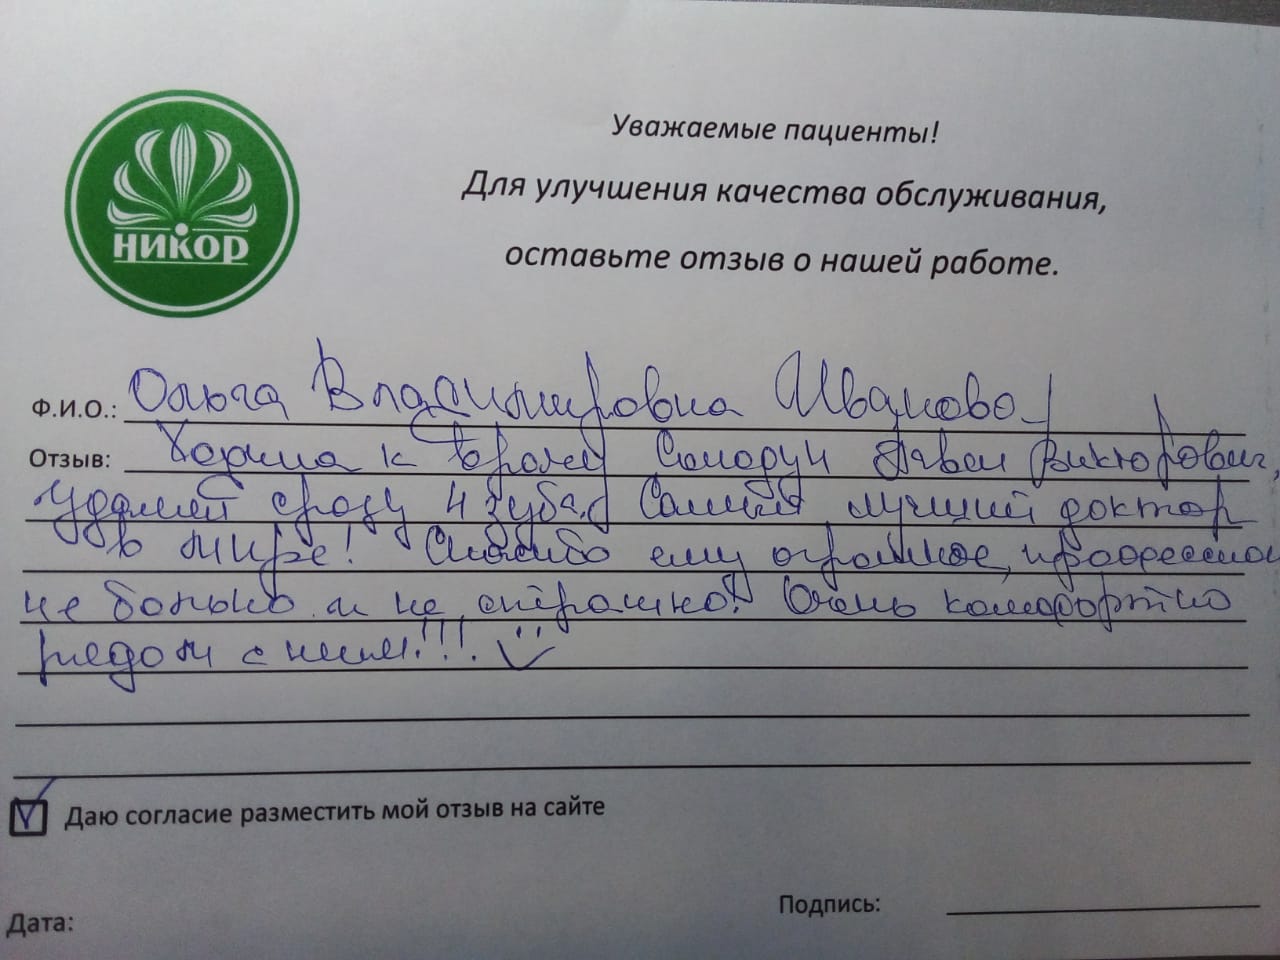 НИКОР
Уважаемые пациенты!
Для улучшения качества обслуживания,
оставьте отзыв о нашей работе.
Ф.И.О.: Ольга Владимировна Иваново
Отзыв: Ходила к врачу Павел Викторович,
удалил сразу 4 зуба. Самый лучший доктор
в мире! Спасибо ему огромное,
не больно и не страшно! Очень комфортно
рядом с ним!!!
Даю согласие разместить мой отзыв на сайте
Подпись:
Дата: